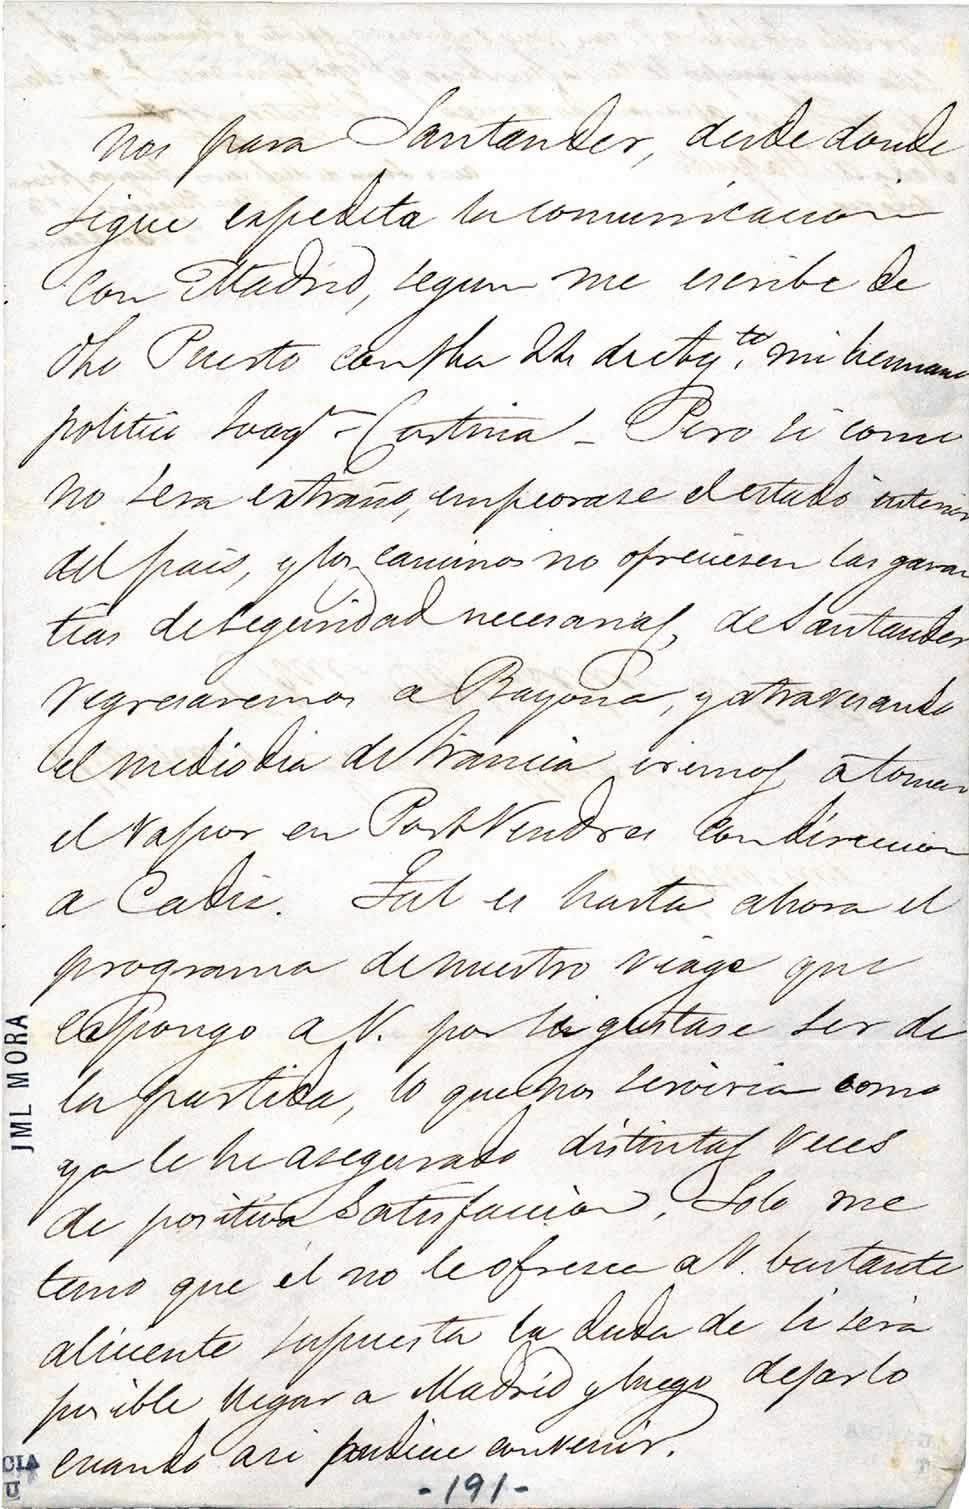 nos para Santander, desde donde
sigue expedita la comunicacion
con Madrid, segun me escribe de
dho Puerto con fha 22 de Ag.to, mi hermano
politico Joaqn Cortina – Pero si como
no sera extraño, empeorase el estado interior
del pais, y los caminos no ofreciesen las garan
tias de seguridad necesarias, de Santander
regresaremos a Bayona, y atravesando
el mediodia de Francia iremos a tomar
el vapor en Port Vendres con direccion
a Cadiz. Tal es hasta ahora el
programa de nuestro viage que
expongo a V. por si gustase ser de
la partida, lo que nos serviria como
ya le he asegurado distintas veces
de positiva satisfaccion. Solo me
temo que él no le ofresca a V. bastante
aliciente supuesta la duda de si sera
posible llegar a Madrid y luego dejarlo
cuando asi pudiere convenir.
-191-
JML MORA
CIA